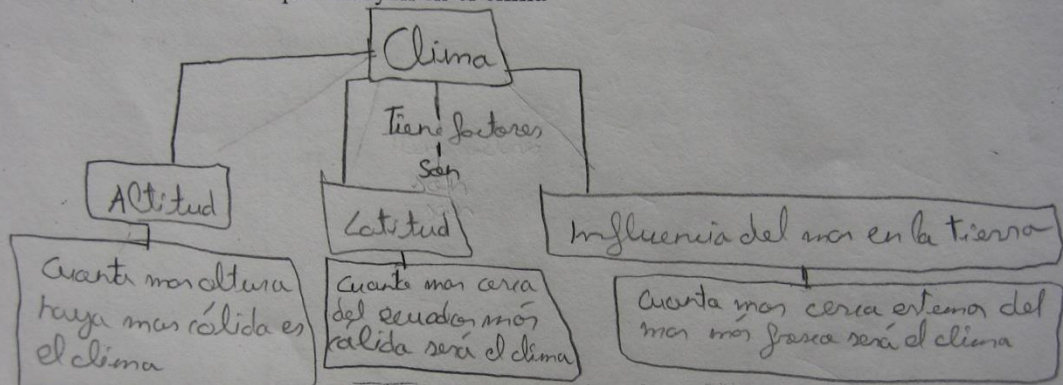 Clima
Tiene factores
son
Altitud
Latitud
Influencia del mar en la tierra
Cuanta mas altura
haya mas cálida es
el clima
Cuanto mas cerca
del ecuador más
calida será el clima
Cuanta mas cerca estemos del
mar mas fresca será el clima